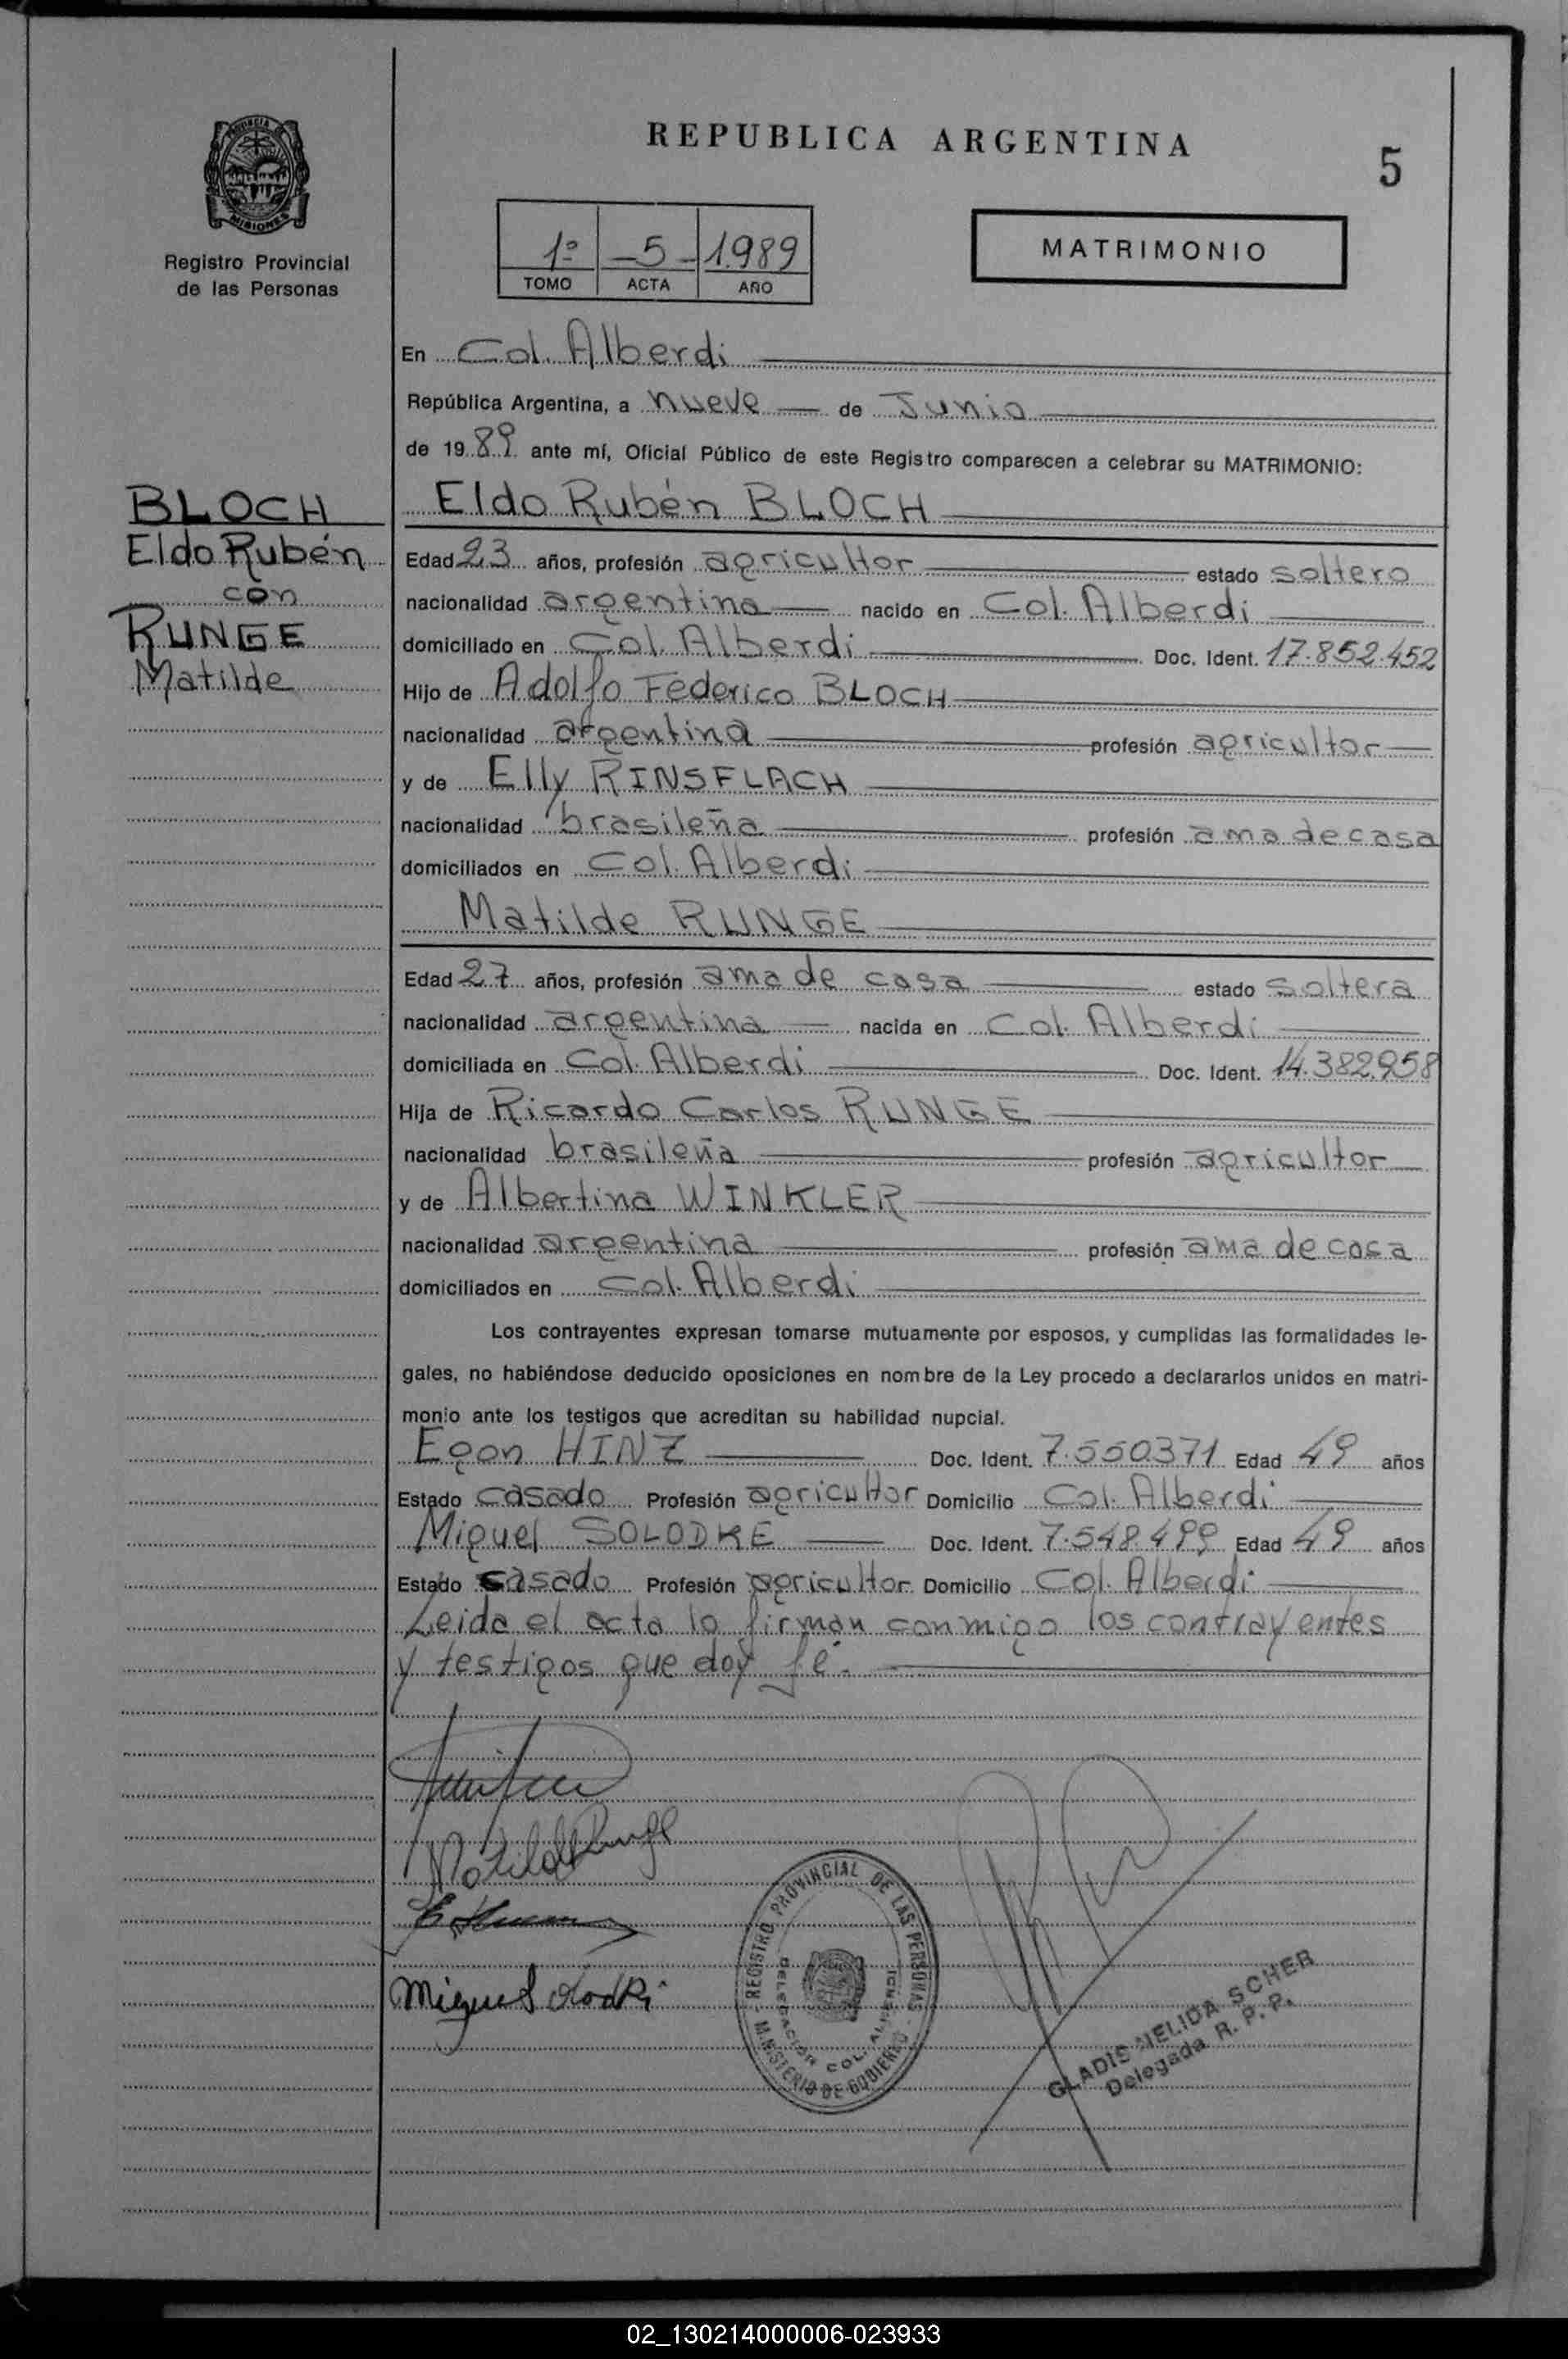 REPUBLICA ARGENTINA
5
PROVINCIA DE
MISIONES
Registro Provincial
de las Personas
1º -5- 1.989
TOMO ACTA AÑO
MATRIMONIO
En Col. Alberdi
República Argentina, a nueve de Junio
de 1989 ante mí, Oficial Público de este Registro comparecen a celebrar su MATRIMONIO:
BLOCH
Eldo Rubén
con
RUNGE
Matilde
Eldo Rubén BLOCH
Edad 23 años, profesión agricultor estado soltero
nacionalidad argentina nacido en Col. Alberdi
domiciliado en Col. Alberdi Doc. Ident. 17.852.452
Hijo de Adolfo Federico BLOCH
nacionalidad argentina profesión agricultor
y de Elly RINSFLACH
nacionalidad brasileña profesión ama de casa
domiciliados en Col. Alberdi
Matilde RUNGE
Edad 27 años, profesión ama de casa estado soltera
nacionalidad argentina nacida en Col. Alberdi
domiciliada en Col. Alberdi Doc. Ident. 14.382.958
Hija de Ricardo Carlos RUNGE
nacionalidad brasileña profesión agricultor
y de Albertina WINKLER
nacionalidad argentina profesión ama de casa
domiciliados en Col. Alberdi
Los contrayentes expresan tomarse mutuamente por esposos, y cumplidas las formalidades le-
gales, no habiéndose deducido oposiciones en nombre de la Ley procedo a declararlos unidos en matri-
monio ante los testigos que acreditan su habilidad nupcial.
Egon HINZ Doc. Ident. 7.550.371 Edad 49 años
Estado casado Profesión agricultor Domicilio Col. Alberdi
Miguel SOLODKE Doc. Ident. 7.548.499 Edad 49 años
Estado casado Profesión agricultor Domicilio Col. Alberdi
Leida el acta la firman conmigo los contrayentes
y testigos que doy fé.
Matilde Runge
Miguel Solodki
REGISTRO PROVINCIAL DE LAS PERSONAS
MINISTERIO DE GOBIERNO
DELEGACION COL. ALBERDI
GLADIS NELIDA SCHER
Delegada R. P. P.
02_130214000006-023933